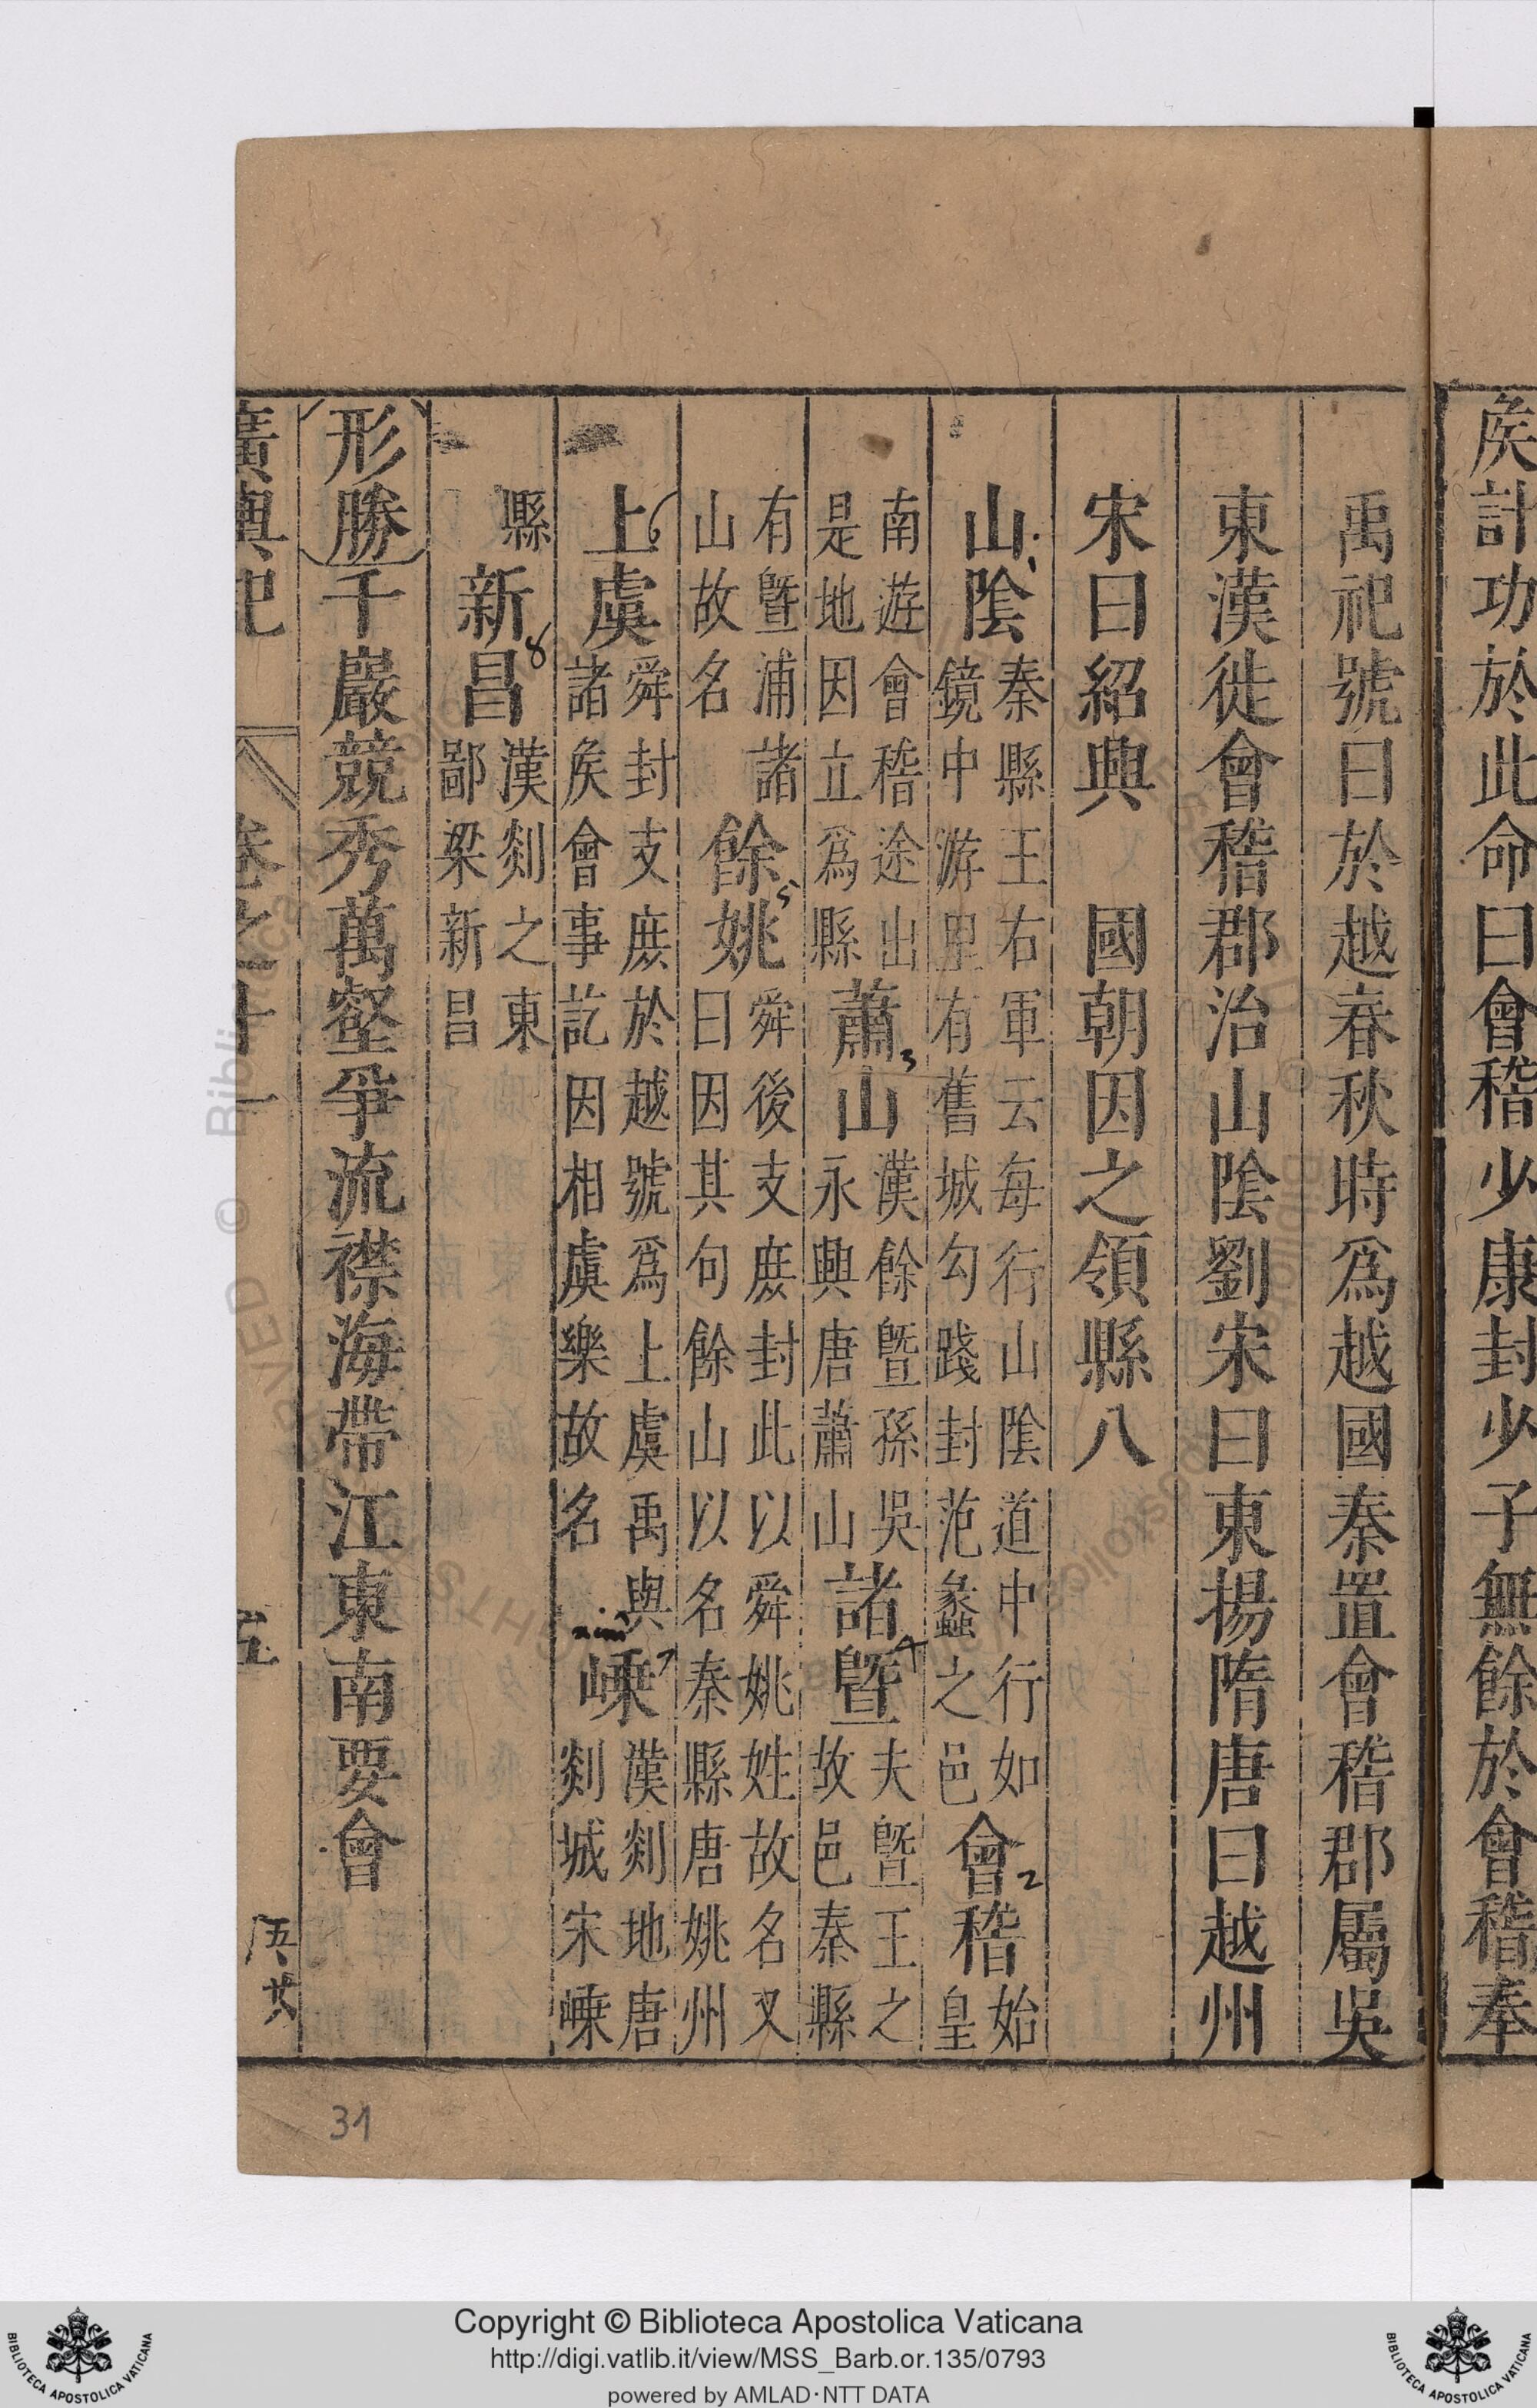 矦計功於此命曰會稽少康封少子無餘於會稽奉
禹祀號曰於越春秋時爲越國秦置會稽郡屬吳
東漢徙會稽郡治山陰劉宋曰東揚隋唐曰越州
宋曰紹興 國朝因之領縣八
山陰 秦縣王右軍云每行山陰道中行如
鏡中游里有舊城勾踐封范蠡之邑 會稽 始
皇
南遊會稽途出
是地因立爲縣 蕭山 漢餘曁孫吳
永興唐蕭山 諸曁 夫曁王之
故邑秦縣
有曁浦諸
山故名 餘姚 舜後支庶封此以舜姚姓故名又
曰因其句餘山以名秦縣唐姚州
上虞 舜封支庶於越號爲上虞禹與
諸矦會事訖因相虞樂故名 嵊 漢剡地唐
剡城宋嵊
縣 新昌 漢剡之東
鄙梁新昌
形勝 千巖競秀萬壑爭流襟海帶江東南要會
廣輿記 卷之十一 五
31
1
2
3
4
5
6
7
8
Copyright © Biblioteca Apostolica Vaticana
http://digi.vatlib.it/view/MSS_Barb.or.135/0793
powered by AMLAD·NTT DATA
BIBLIOTECA APOSTOLICA VATICANA
BIBLIOTECA APOSTOLICA VATICANA